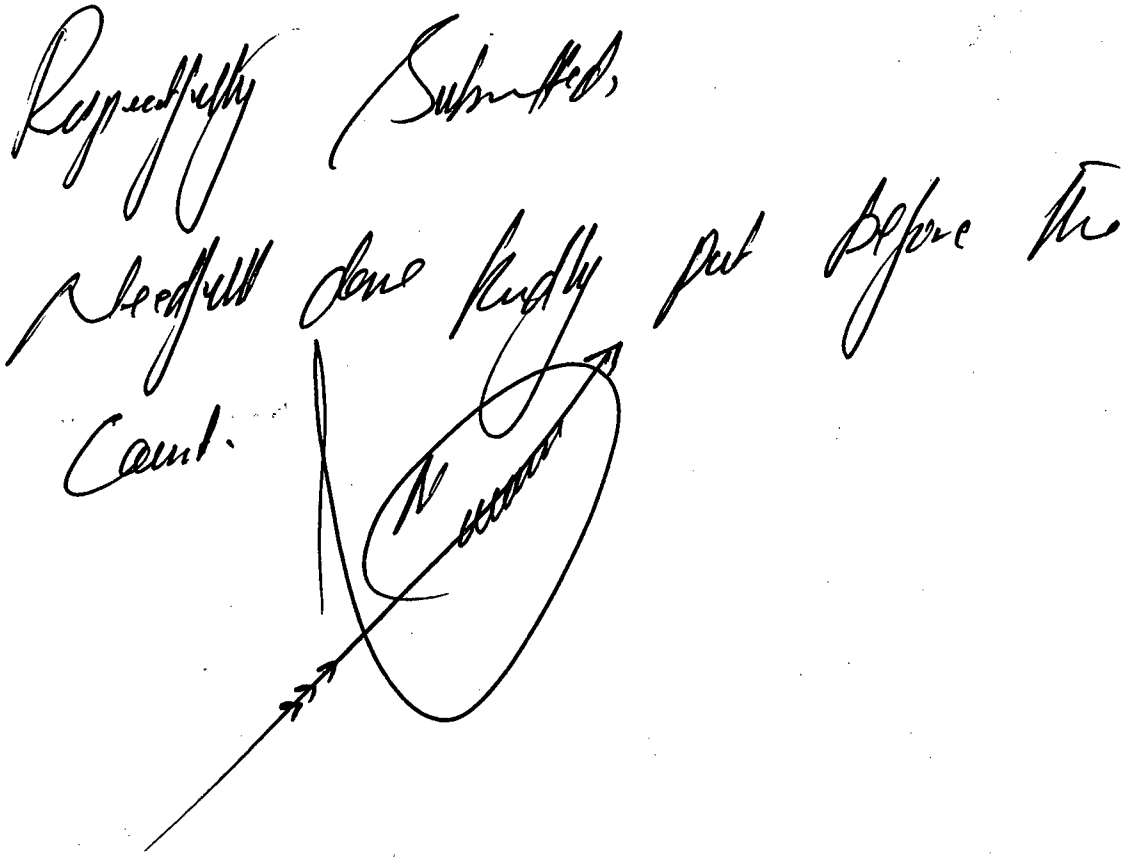 Respectfully Submitted,
Needfull done kindly put before the
Court.